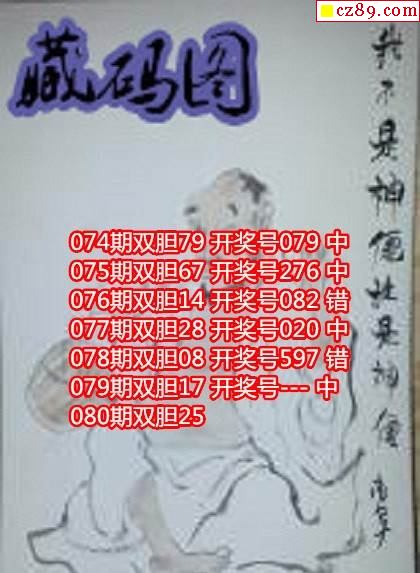 cz89.com
藏码图
我不是神仙胜是神仙
074期双胆79 开奖号079 中
075期双胆67 开奖号276 中
076期双胆14 开奖号082 错
077期双胆28 开奖号020 中
078期双胆08 开奖号597 错
079期双胆17 开奖号--- 中
080期双胆25